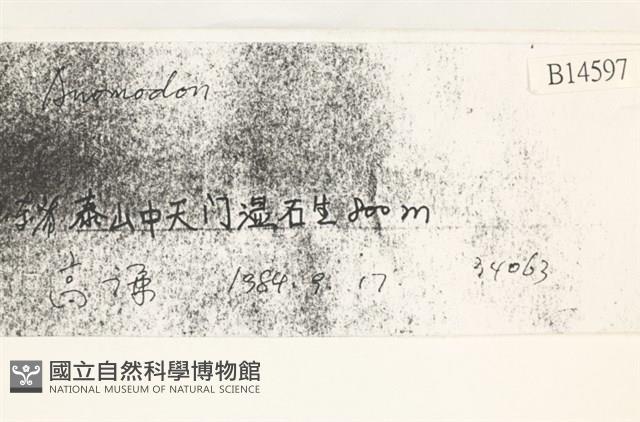 B14597
Anomodon
泰山中天门湿石生 800 m
高谦 1984.9.17 34063
國立自然科學博物館
NATIONAL MUSEUM OF NATURAL SCIENCE